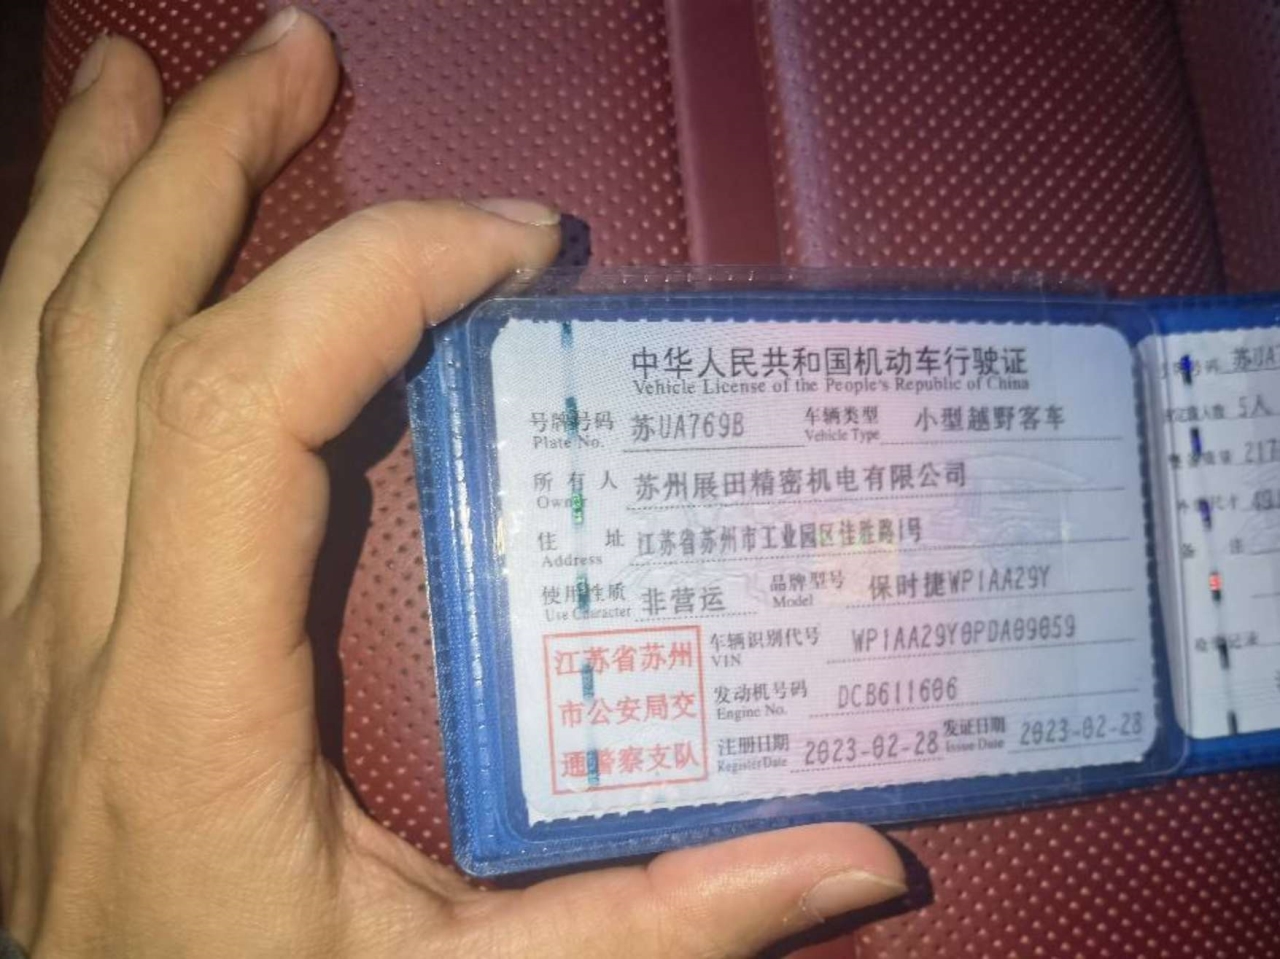 中华人民共和国机动车行驶证
Vehicle License of the People's Republic of China
号牌号码 苏UA769B 车辆类型 小型越野客车
Plate No. Vehicle Type
所有人 苏州展田精密机电有限公司
Owner
住址 江苏省苏州市工业园区佳胜路1号
Address
使用性质 非营运 品牌型号 保时捷WP1AA29Y
Use Character Model
车辆识别代号 WP1AA29Y0PDA09059
VIN
发动机号码 DCB611606
Engine No.
注册日期 2023-02-28 发证日期 2023-02-28
Register Date Issue Date
江苏省苏州
市公安局交
通警察支队
号码 苏UA
人数 5人
质量 217
尺寸
备注
记录